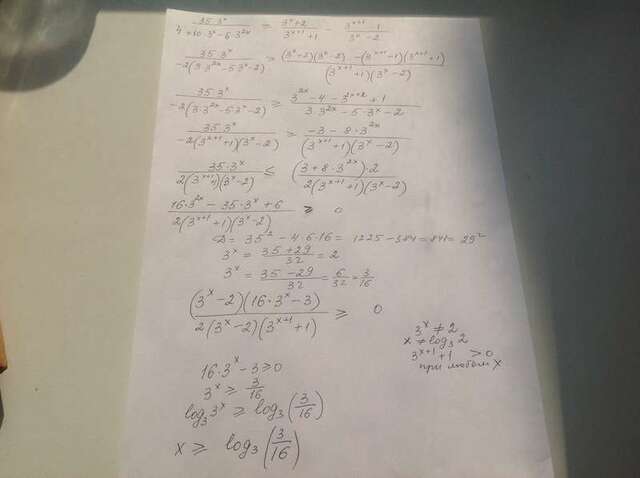 35·3ˣ / (4+10·3ˣ−6·3²ˣ) = (3ˣ+2)/(3ˣ⁺¹+1) − (3ˣ⁺¹−1)/(3ˣ−2)
35·3ˣ / (−2(3·3²ˣ−5·3ˣ−2)) ≥ ((3ˣ+2)(3ˣ−2)−(3ˣ⁺¹−1)(3ˣ⁺¹+1)) / ((3ˣ⁺¹+1)(3ˣ−2))
35·3ˣ / (−2(3·3²ˣ−5·3ˣ−2)) ≥ (3²ˣ−4−3²ˣ⁺²+1) / (3·3²ˣ−5·3ˣ−2)
35·3ˣ / (−2(3ˣ⁺¹+1)(3ˣ−2)) ≥ (−3−8·3²ˣ) / ((3ˣ⁺¹+1)(3ˣ−2))
35·3ˣ / (2(3ˣ⁺¹+1)(3ˣ−2)) ≤ ((3+8·3²ˣ)·2) / (2(3ˣ⁺¹+1)(3ˣ−2))
(16·3²ˣ − 35·3ˣ + 6) / (2(3ˣ⁺¹+1)(3ˣ−2)) ≥ 0
D = 35² − 4·6·16 = 1225 − 384 = 841 = 29²
3ˣ = (35+29)/32 = 2
3ˣ = (35−29)/32 = 6/32 = 3/16
((3ˣ−2)(16·3ˣ−3)) / (2(3ˣ−2)(3ˣ⁺¹+1)) ≥ 0
3ˣ ≠ 2
x ≠ log₃2
3ˣ⁺¹+1 > 0
при любом x
16·3ˣ−3 ≥ 0
3ˣ ≥ 3/16
log₃3ˣ ≥ log₃(3/16)
x ≥ log₃(3/16)